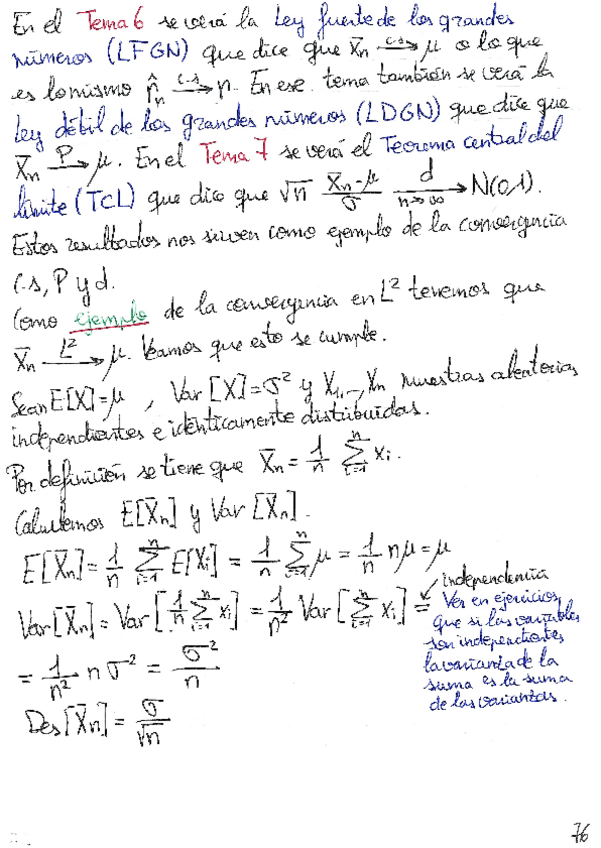 En el Tema 6 se verá la Ley fuerte de los grandes
números (LFGN) que dice que X̄n —c.s→ μ o lo que
es lo mismo p̂n —c.s→ p. En ese tema también se verá la
Ley débil de los grandes números (LDGN) que dice que
X̄n —P→ μ. En el Tema 7 se verá el Teorema central del
límite (TCL) que dice que √n (X̄n-μ)/σ —d, n→∞→ N(0,1).
Estos resultados nos sirven como ejemplo de la convergencia
c.s, P y d.
Como ejemplo de la convergencia en L² tenemos que
X̄n —L²→ μ. Veamos que esto se cumple.
Sean E[X]=μ, Var[X]=σ² y X1,..,Xn muestras aleatorias
independientes e idénticamente distribuidas.
Por definición se tiene que X̄n = 1/n Σ(i=1, n) Xi.
Calculemos E[X̄n] y Var[X̄n].
E[X̄n] = 1/n Σ(i=1, n) E[Xi] = 1/n Σ(i=1, n) μ = 1/n nμ = μ
Var[X̄n] = Var[1/n Σ(i=1, n) Xi] = 1/n² Var[Σ(i=1, n) Xi] =
independencia
Ver en ejercicios
que si las variables
son independientes
la varianza de la
suma es la suma
de las varianzas.
= 1/n² n σ² = σ²/n
Des[X̄n] = σ/√n
76